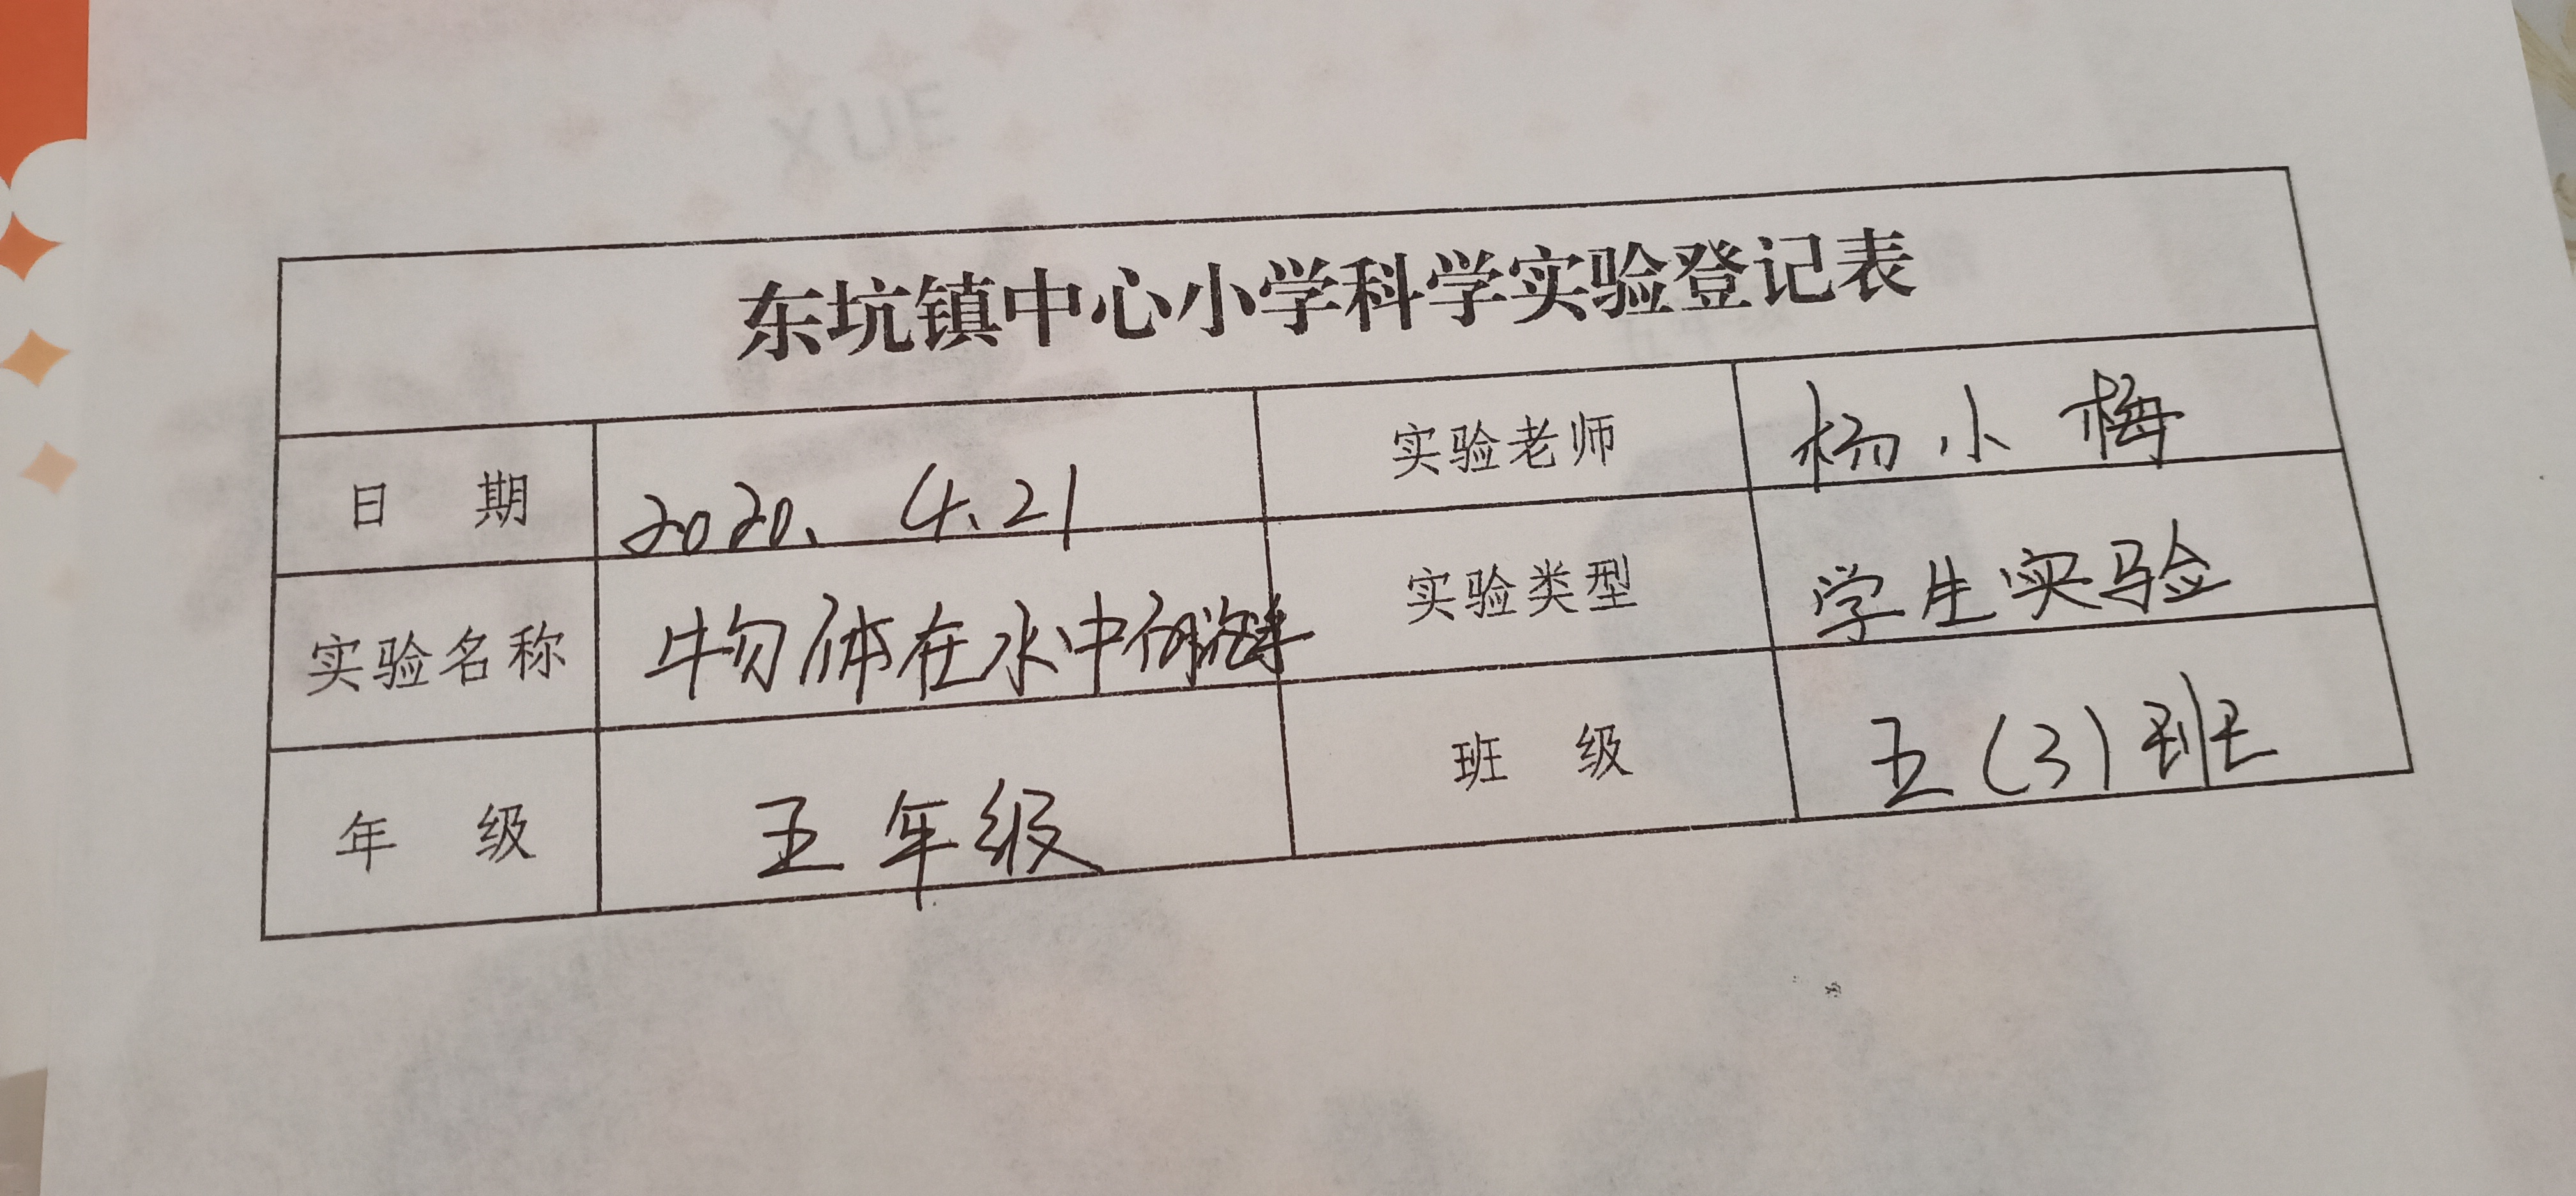 XUE
东坑镇中心小学科学实验登记表
日 期 2020. 4.21 实验老师 杨小梅
实验名称 物体在水中 实验类型 学生实验
年 级 五年级 班 级 五(3)班